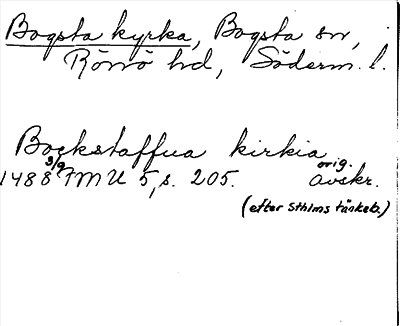 Bogsta kyrka, Bogsta sn,
Rönö hd, Söderm. l.
Bockstaffua kirkia
1488 3/9 FMU 5, s. 205. orig. Avskr.
(efter Sthlms tänkeb.)